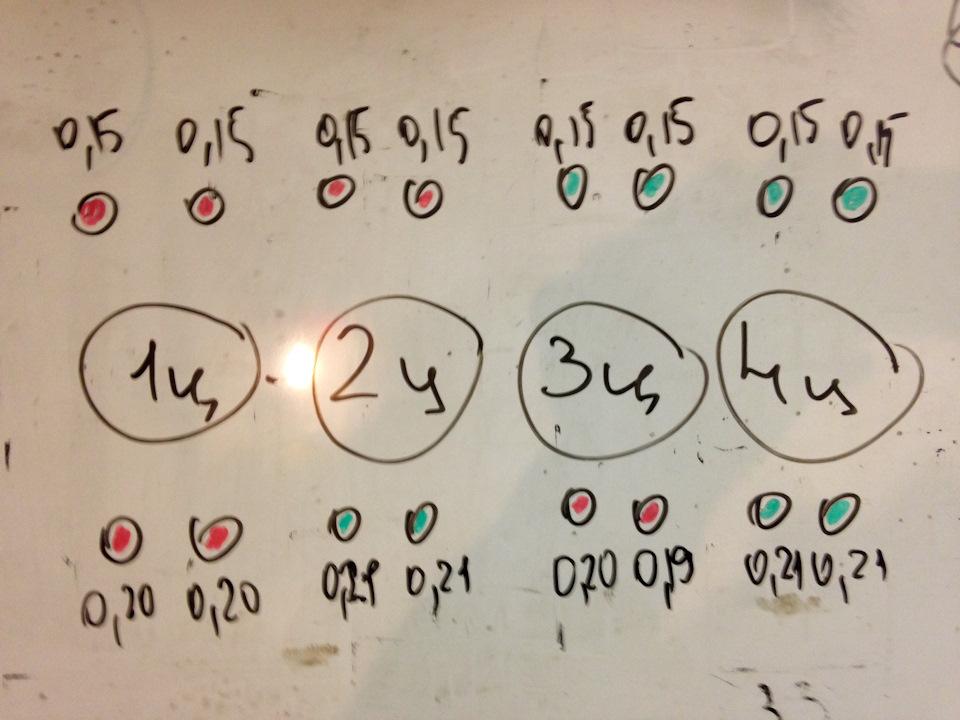 0,15 0,15 0,15 0,15 0,15 0,15 0,15 0,15
1ц 2ц 3ц 4ц
0,20 0,20 0,21 0,21 0,20 0,19 0,21 0,21